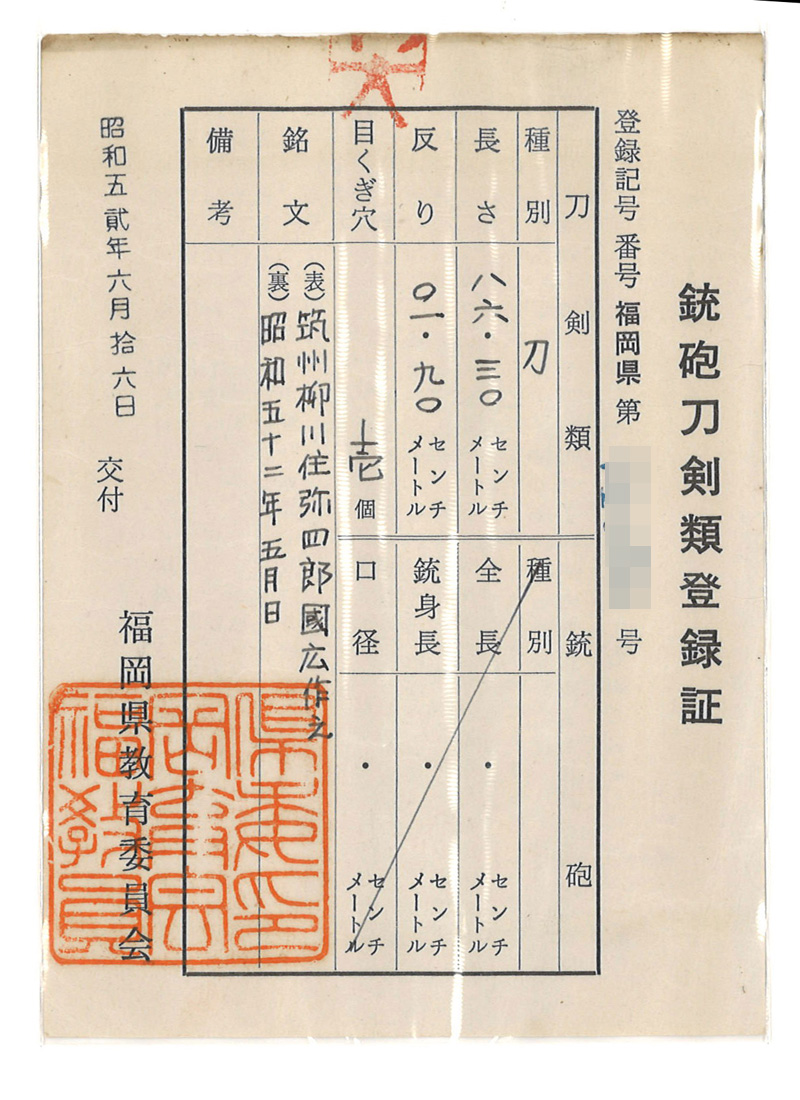 銃砲刀剣類登録証
登録記号番号福岡県第 号
刀剣類
種別 刀
長さ 八六・三〇 センチメートル
反り 〇一・九〇 センチメートル
目くぎ穴 壱個
銘文 (表)筑州柳川住弥四郎國広作之
(裏)昭和五十二年五月日
備考
銃砲
種別
全長 ・ センチメートル
銃身長 ・ センチメートル
口径 ・ センチメートル
昭和五貳年六月拾六日 交付
福岡県教育委員会